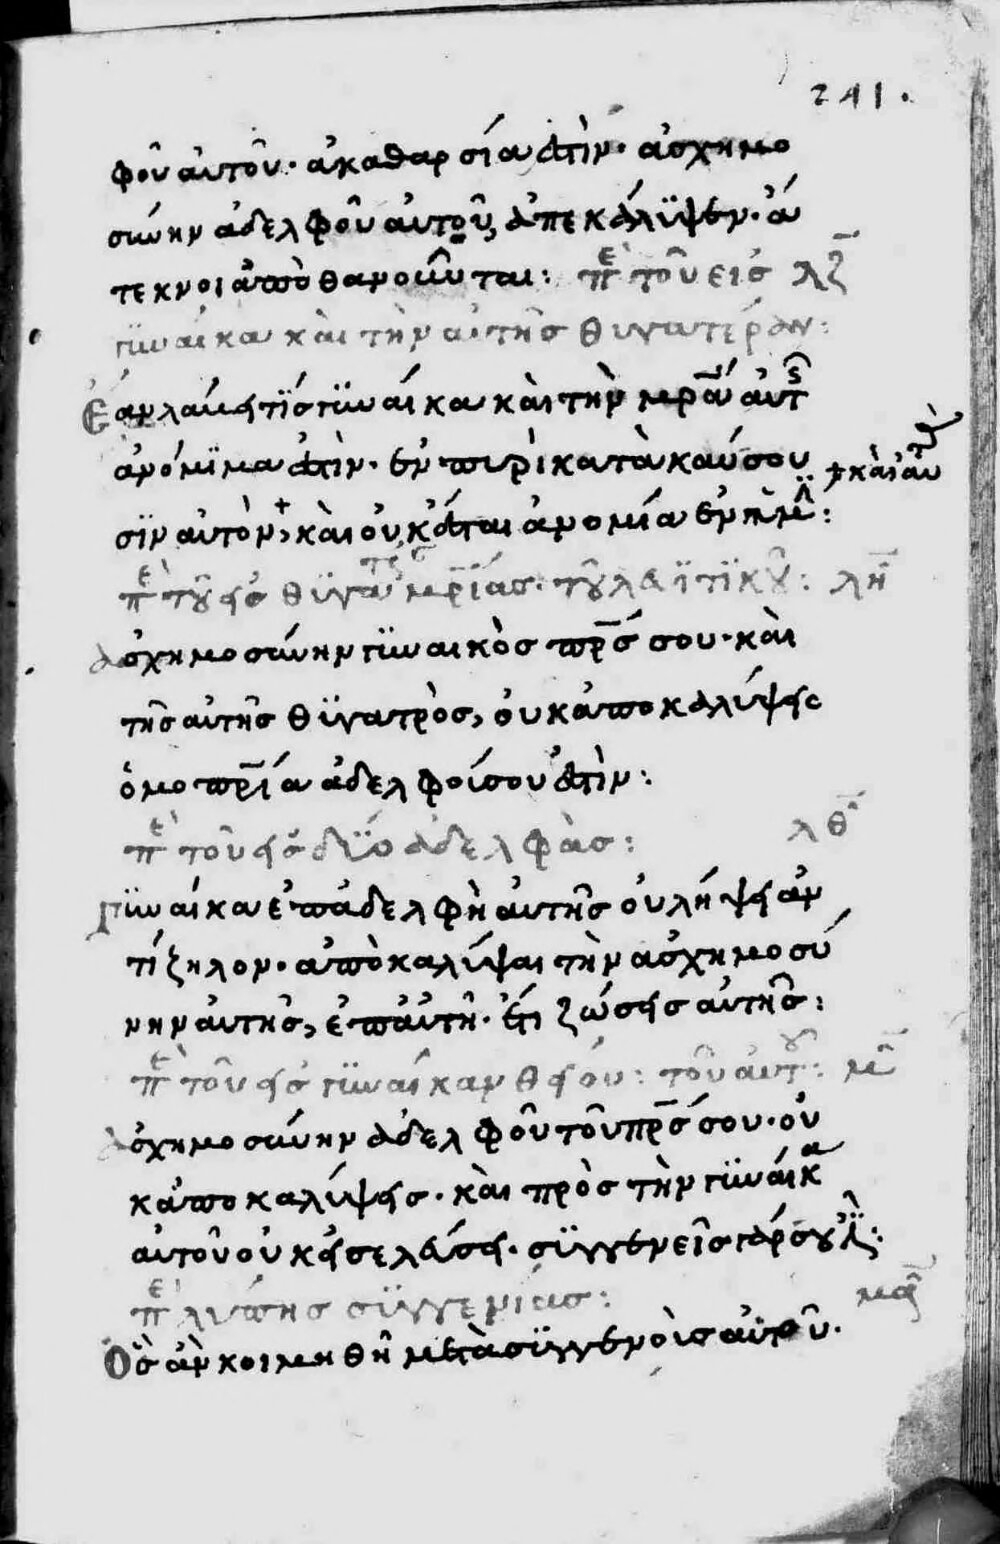 241.
φοῦ αὐτοῦ· ἀκαθαρσία ἐστὶν· ἀσχημο
σύνην ἀδελφοῦ αὐτοῦ, ἀπεκάλϋψεν· ἄ
τεκνοι ἀποθανοῦνται: πὲ τοῦ εἰς λζ̄
γϋναίκα καὶ τὴν αὐτῆς θυγατέραν:
Ἐὰν λάβῃ τῒς γϋναίκα καὶ τὴν μρ̄α αὐτς
ἀνόμϊμα ἐστὶν· ἐν πυρὶ κατακαύσου
σϊν αὐτὸν,+ καὶ οὐκ ἔσται ἀνομία ἐν ὑμ: + καὶ αὐ
πὲ τοῦ εἰς θϋγατερας μρ̄ίας· τοῦ λεϊτϊκοῦ: λη̄
ἀσχημοσύνην γϋναικὸς πρ̄ς σου· καὶ
τῆς αὐτῆς θϋγατρὸς, οὐκ ἀποκαλύψεις
ὁμοπρ̄ία ἀδελφοί σου ἐστὶν:
πὲ τοῦ εἰς δΰο ἀδελφὰς: λθ̄
Γϋναίκα ἐπ' ἀδελφῆ αὐτῆς οὐ λήψει ἀν
τίζηλον· ἀποκαλύψαι τὴν ἀσχημοσύ
νην αὐτῆς, ἐπ' αὐτῆ· ἔτι ζώσεις αὐτῆς:
πὲ τοῦ εἰς γϋναίκαν θείου: τοῦ αὐτοῦ: μ̄
ἀσχημοσύνην ἀδελφοῦ τοῦ πρ̄ς σου· οὐ
κ ἀποκαλύψεις· καὶ πρὸς τὴν γϋναίκα
αὐτοῦ οὐκ εἰσελεύσει· σϋγγενεῖς γάρ σου
πὲ λύπης σϋγγενίας: μᾱ
Ὃς ἂν κοιμηθῆ μετὰ σϋγγενοὶς αὐτοῦ·